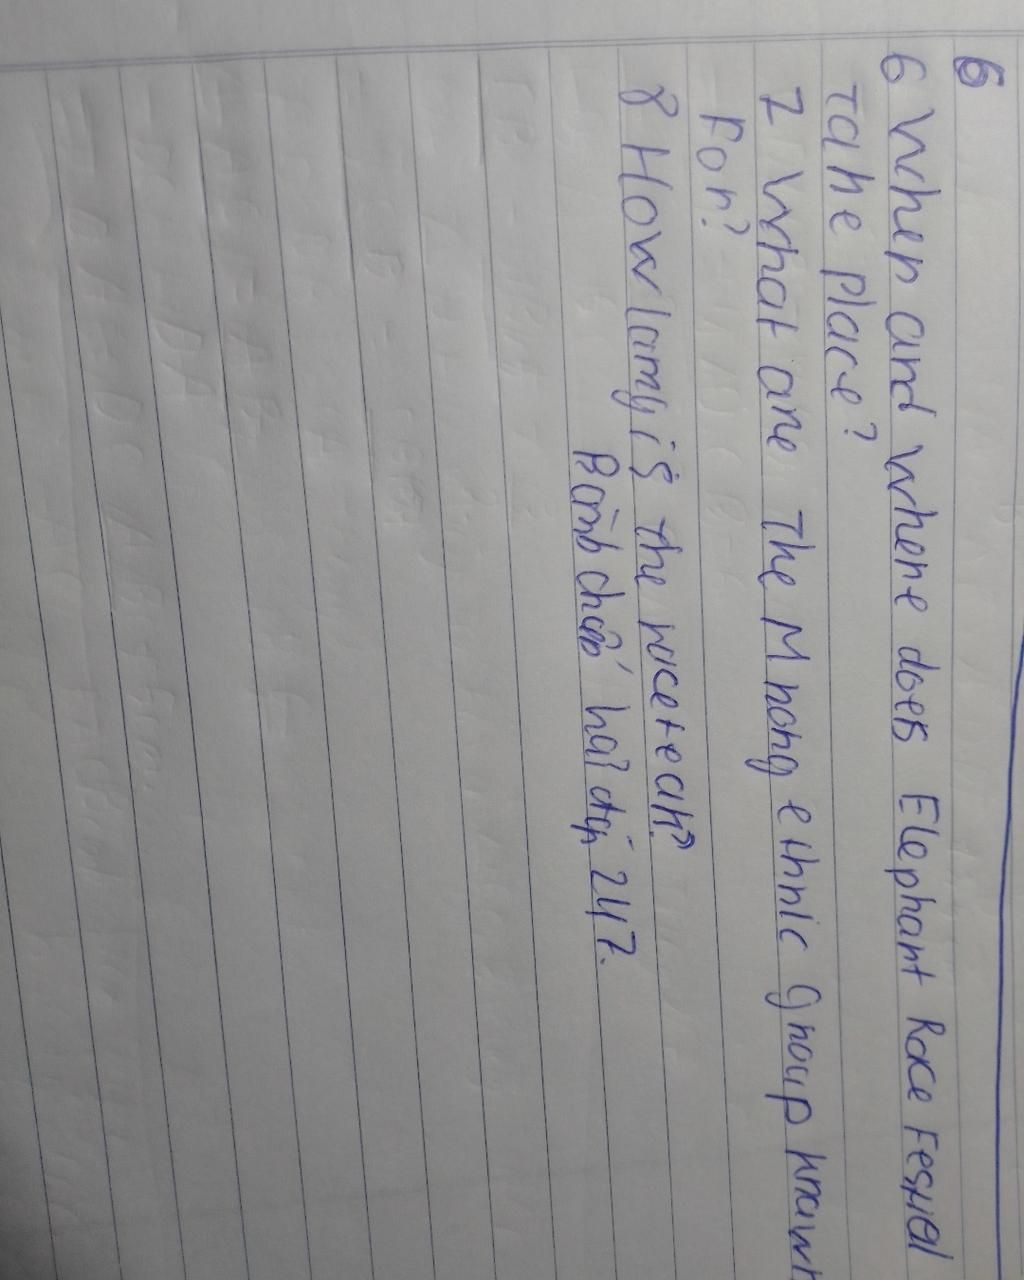 6
6 When and where does Elephant Race Fesival
take place?
7 What are the Mnong ethnic group known
For?
8 How lang is the racetrak?
hai 247.